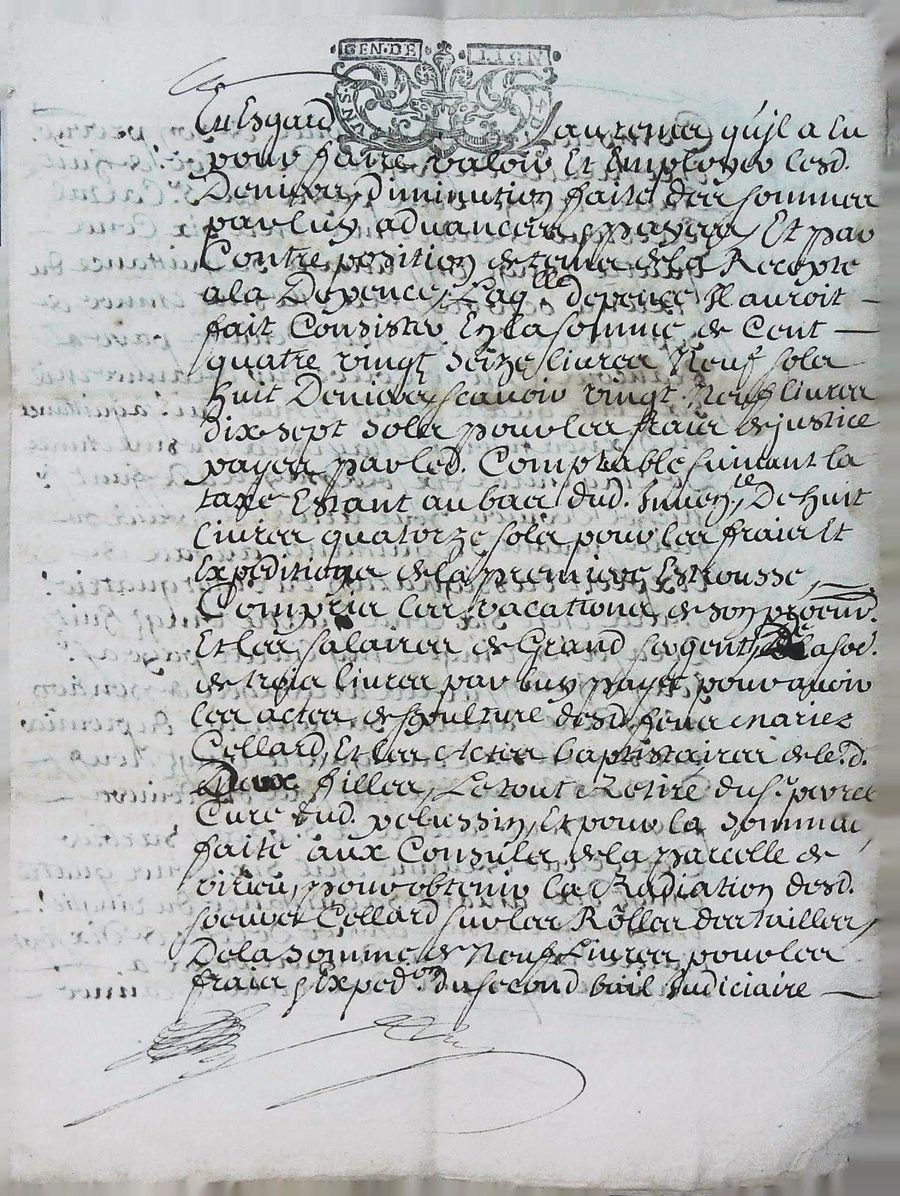 GEN·DE LION
VN·S· ·D·
Eu Esgard au temps qu'jl a Eu
pour faire valoir Et Employer lesd.
Deniers, diminution faite des sommes
par luy aduancées, payées, Et par
Contre position de tems de la Recepte
a la Depence, Laq.lle depence Il auroit —
fait Consister En la somme de Cent —
quatre vingt seize liures Neuf sols
huit Deniers, scauoir vingt Neuf liures
dix sept sols pour les frais de justice
payes par led. Comptable suiuant la
taxe Estant au bas dud. Inuen.re, De huit
liures quatorze sols pour les frais Et
Expeditions de la premiere Estrousse,
Compris les vacations de son procur.
Et les salaires de Grand sergent, De la so.e
de trois liures par luy payés pour auoir
les actes de sepulture desd. feus maries
Cellard, Et les Actes baptistaires de led.
Deux filles, Le tout Retiré du s.r
Curé dud. pelussin, Et pour la somme
faite aux Consuls de la parcelle de
virieu, pour obtenir la Radiation desd.
soeurs Cellard sur les Rôlles des tailles,
De la somme de Neuf Liures pour les
frais, Exped.on du second bail Judiciaire —